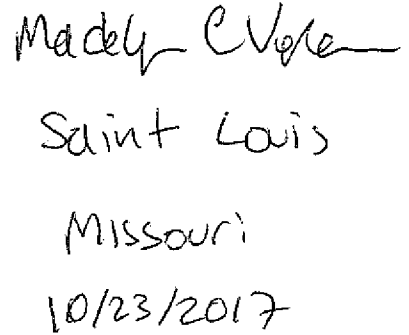 Madelyn C
Saint Louis
Missouri
10/23/2017